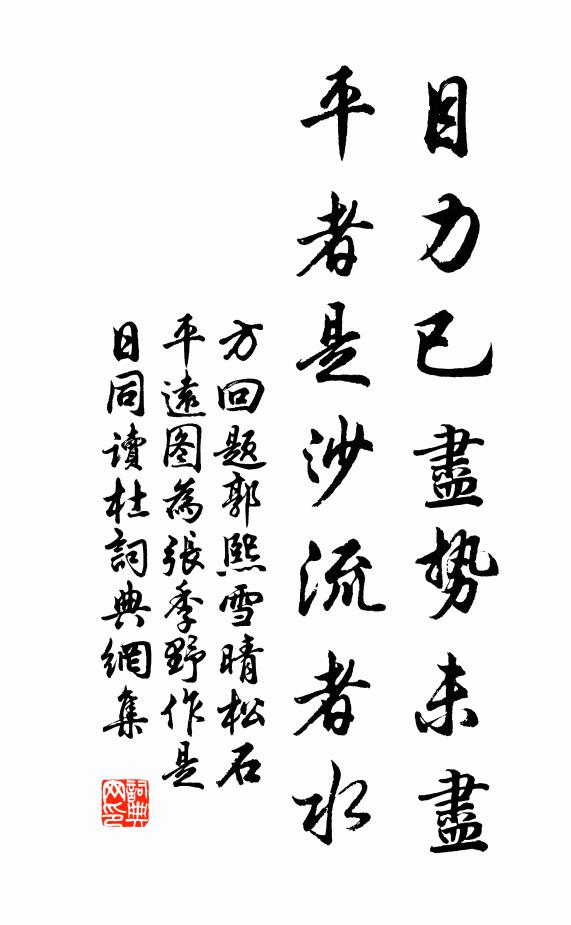 目力已盡勢未盡
平者是沙流者水
方回題郭熙雪晴松石
平遠图為張季野作是
日同讀杜詞典網集
詞典网印